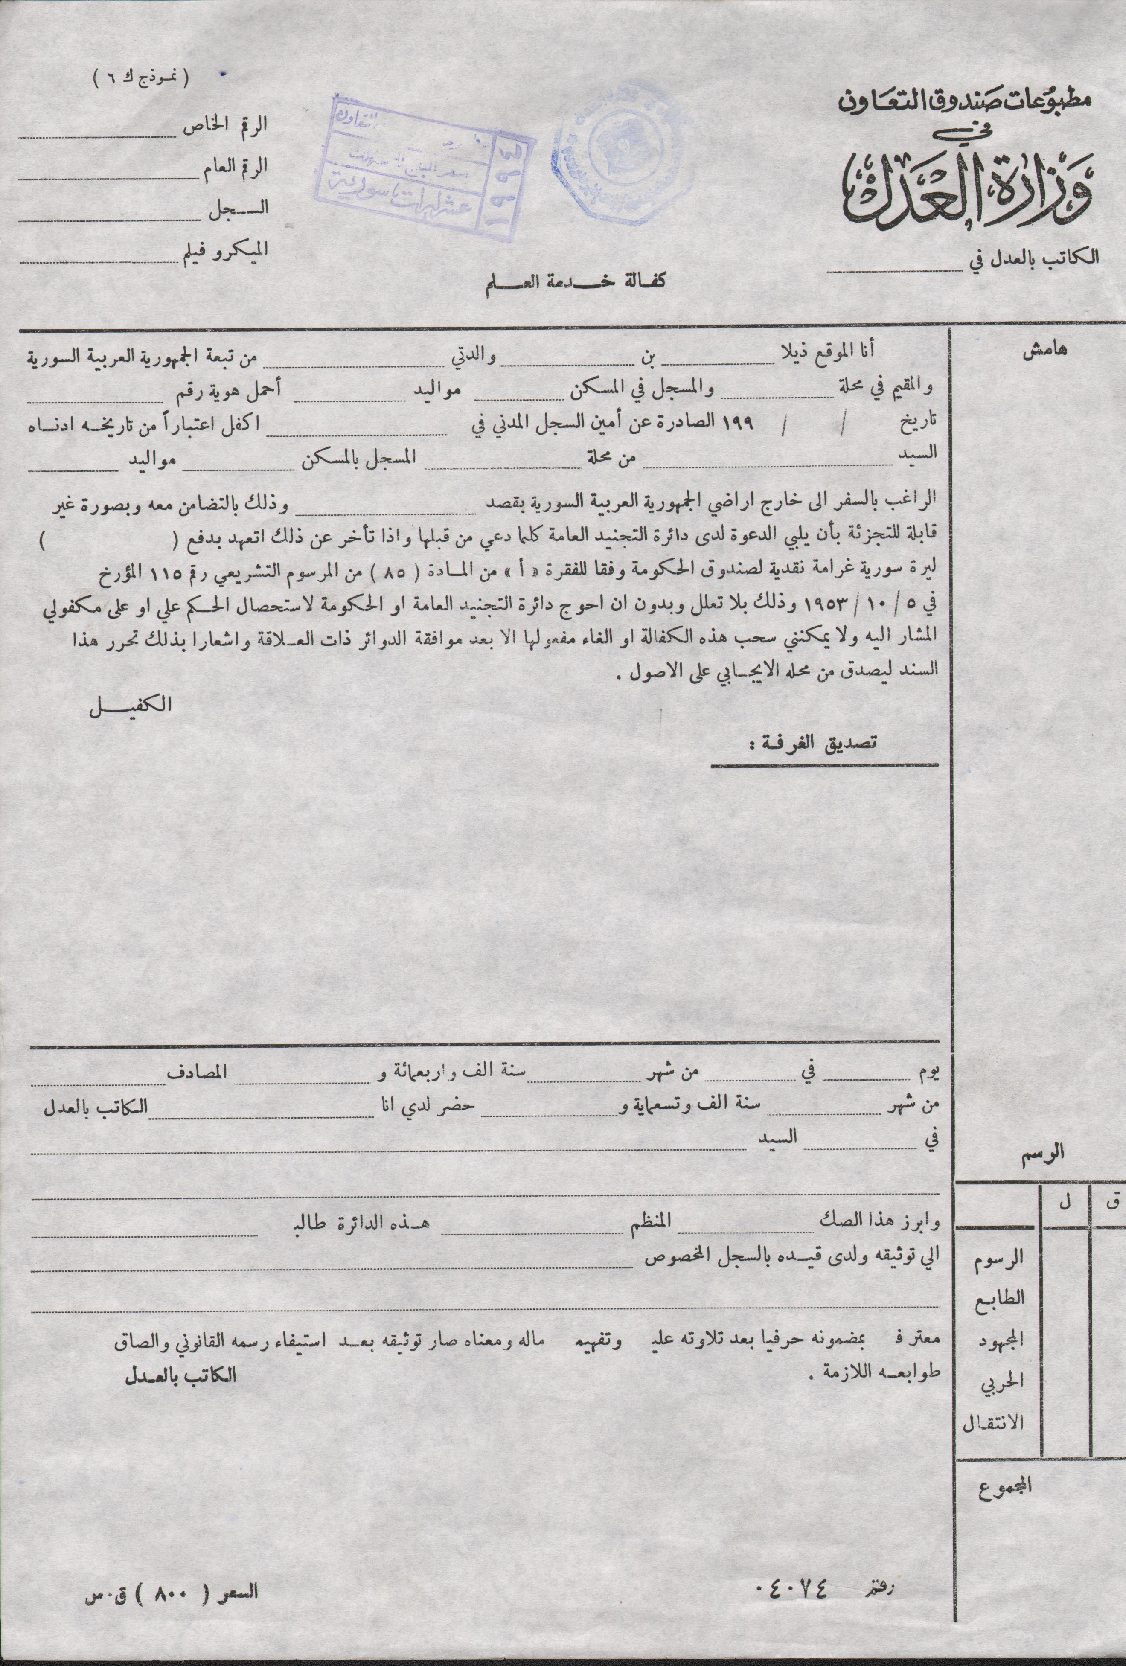 مطبوعات صندوق التعاون
في
وزارة العدل
الكاتب بالعدل في
( نموذج ك ٦ )
الرقم الخاص
الرقم العام
السجل
الميكروفيلم
عشر ليرات سورية
١٩٩٤
كفالة خدمة العلم
هامش
أنا الموقع ذيلا بن والدتي من تبعة الجمهورية العربية السورية
والمقيم في محلة والمسجل في المسكن مواليد أحمل هوية رقم
تاريخ / / ١٩٩ الصادرة عن أمين السجل المدني في اكفل اعتباراً من تاريخه ادناه
السيد من محلة المسجل بالمسكن مواليد
الراغب بالسفر الى خارج اراضي الجمهورية العربية السورية بقصد وذلك بالتضامن معه وبصورة غير
قابلة للتجزئة بأن يلبي الدعوة لدى دائرة التجنيد العامة كلما دعي من قبلها واذا تأخر عن ذلك اتعهد بدفع ( )
ليرة سورية غرامة نقدية لصندوق الحكومة وفقا للفقرة « أ » من المادة ( ٨٥ ) من المرسوم التشريعي رقم ١١٥ المؤرخ
في ٥ / ١٠ / ١٩٥٣ وذلك بلا تعلل وبدون ان احوج دائرة التجنيد العامة او الحكومة لاستحصال الحكم علي او على مكفولي
المشار اليه ولا يمكنني سحب هذه الكفالة او الغاء مفعولها الا بعد موافقة الدوائر ذات العلاقة واشعارا بذلك تحرر هذا
السند ليصدق من محله الايجابي على الاصول .
الكفيل
تصديق الغرفة :
يوم في من شهر سنة الف واربعمائة و المصادف
من شهر سنة الف وتسعماية و حضر لدي انا الكاتب بالعدل
في السيد
وابرز هذا الصك المنظم هذه الدائرة طالب
الي توثيقه ولدى قيده بالسجل المخصوص
معترف بمضمونه حرفيا بعد تلاوته عليه وتفهيمه ماله ومعناه صار توثيقه بعد استيفاء رسمه القانوني والصاق
طوابعه اللازمة .
الكاتب بالعدل
الوسم
ق ل
الرسوم
الطابع
المجهود
الحربي
الانتقال
المجموع
رقم ٠٤٠٧٤
السعر ( ٨٠٠ ) ق.س